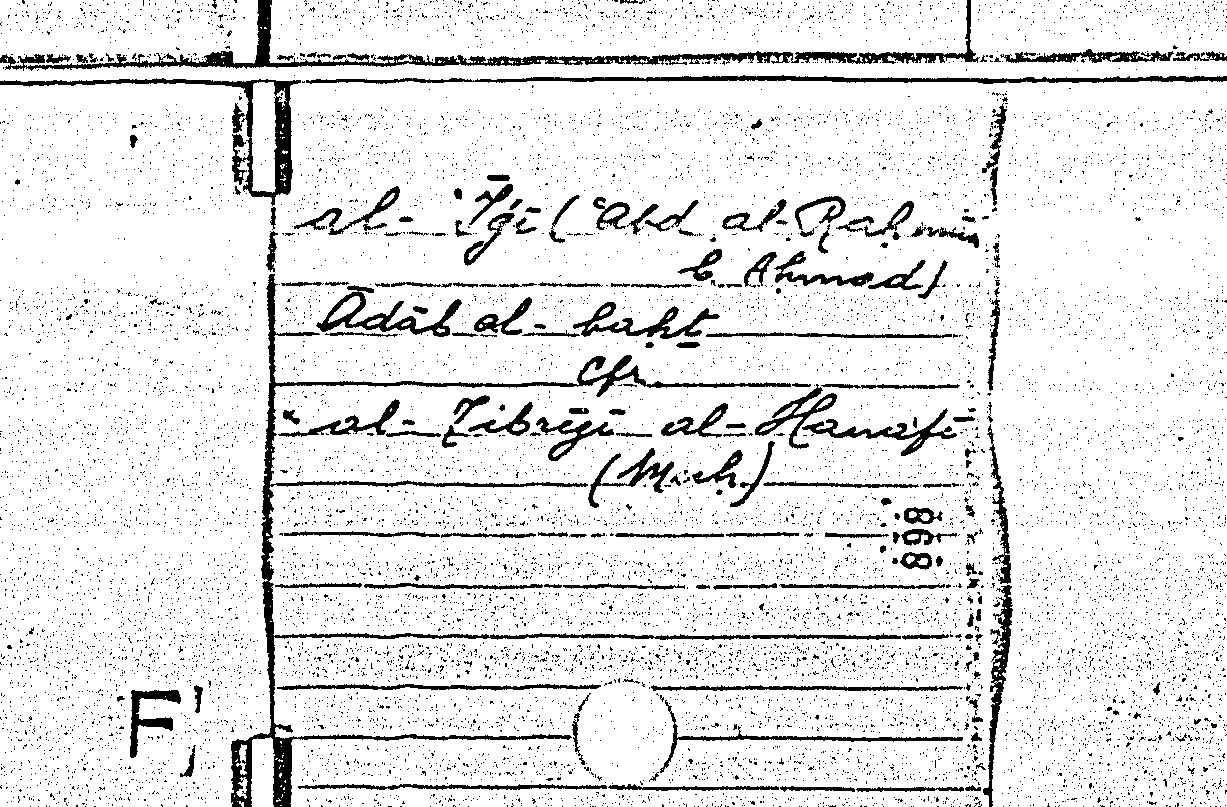 al-'Īǧī (ʿAbd al-Raḥmān
b. Aḥmad)
Ādāb al-baḥṯ
Cfr.
al-Tibrīzī al-Ḥanafī
868
F